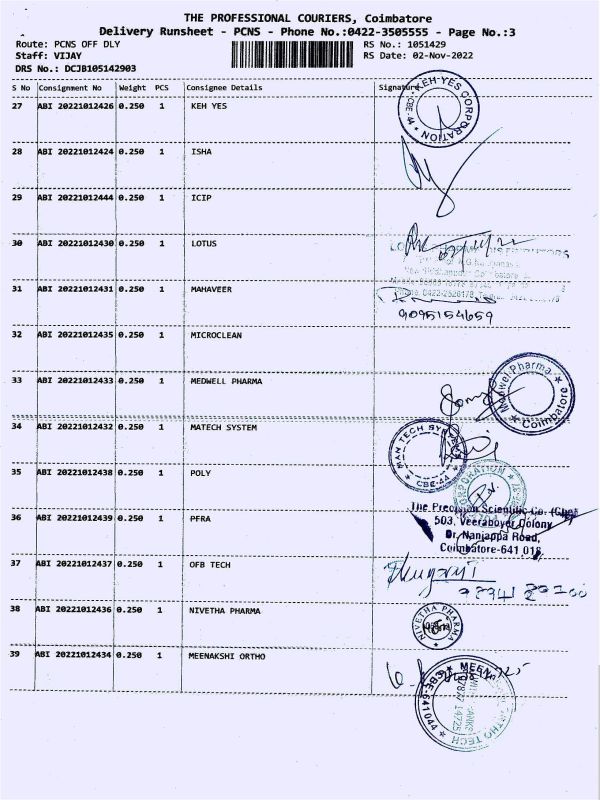 THE PROFESSIONAL COURIERS, Coimbatore
Delivery Runsheet - PCNS - Phone No.:0422-3505555 - Page No.:3
Route: PCNS OFF DLY RS No.: 1051429
Staff: VIJAY RS Date: 02-Nov-2022
DRS No.: DCJB105142903
S No Consignment No Weight PCS Consignee Details Signature
27 ABI 20221012426 0.250 1 KEH YES
KEH YES CORPORATION * CBE-44 *
28 ABI 20221012424 0.250 1 ISHA
29 ABI 20221012444 0.250 1 ICIP
30 ABI 20221012430 0.250 1 LOTUS
31 ABI 20221012431 0.250 1 MAHAVEER
Phone 0422-2520178
9095154659
32 ABI 20221012435 0.250 1 MICROCLEAN
33 ABI 20221012433 0.250 1 MEDWELL PHARMA
Medwel Pharma * Coimbatore *
34 ABI 20221012432 0.250 1 MATECH SYSTEM
MAN TECH SYSTEMS * CBE-44 *
35 ABI 20221012438 0.250 1 POLY
CORPORATION
The Precision Scientific Co. (Cbe)
36 ABI 20221012439 0.250 1 PFRA
503, Veeraboyer Colony
Dr. Nanjappa Road,
Coimbatore-641 018.
37 ABI 20221012437 0.250 1 OFB TECH
38 ABI 20221012436 0.250 1 NIVETHA PHARMA
NIVETHA PHARMA
39 ABI 20221012434 0.250 1 MEENAKSHI ORTHO
CBE-641044 * MEENAKSHI ORTHO TECH